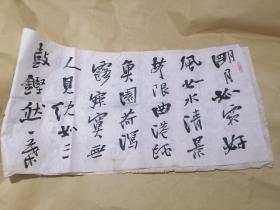 明月如霜好
風如水清景
無限曲港跳
魚圓荷瀉
露寂寞無
人見紞如三
鼓鏗然一葉